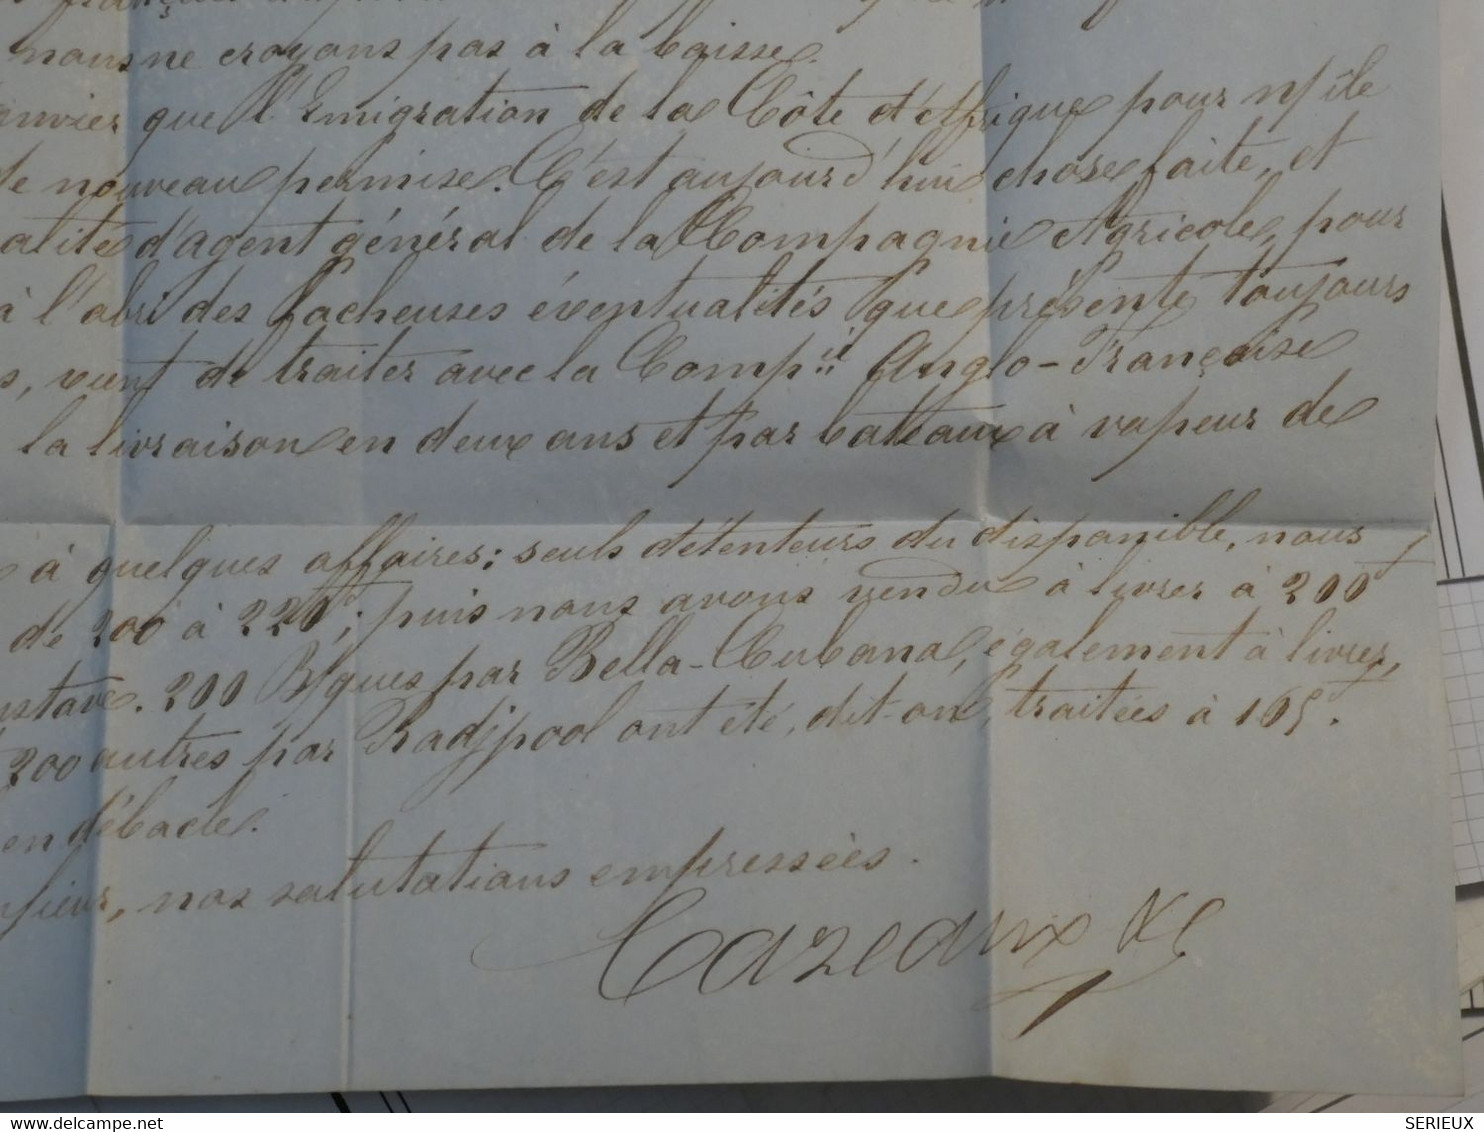 nous ne croyons pas à la baisse.
que l'Emigration de la Côte d'Afrique pour n/ île
de nouveau permise. C'est aujourd'hui chose faite, et
alité d'agent général de la Compagnie Agricole, pour
à l'abri des facheuses éventualités que présente toujours
s, vient de traiter avec la Compie Anglo-Française
la livraison en deux ans et par bateaux à vapeur de
à quelques affaires; seuls détenteurs du disponible, nous
de 200 à 220f; puis nous avons vendu à livrer à 200f
ustave. 200 B/ques par Bella-Cubana, également à livrer,
200 autres par Radjpool ont été, dit-on, traitées à 165f.
en débacle.
nos salutations empressées.
Cazeaux & C
SERIEUX